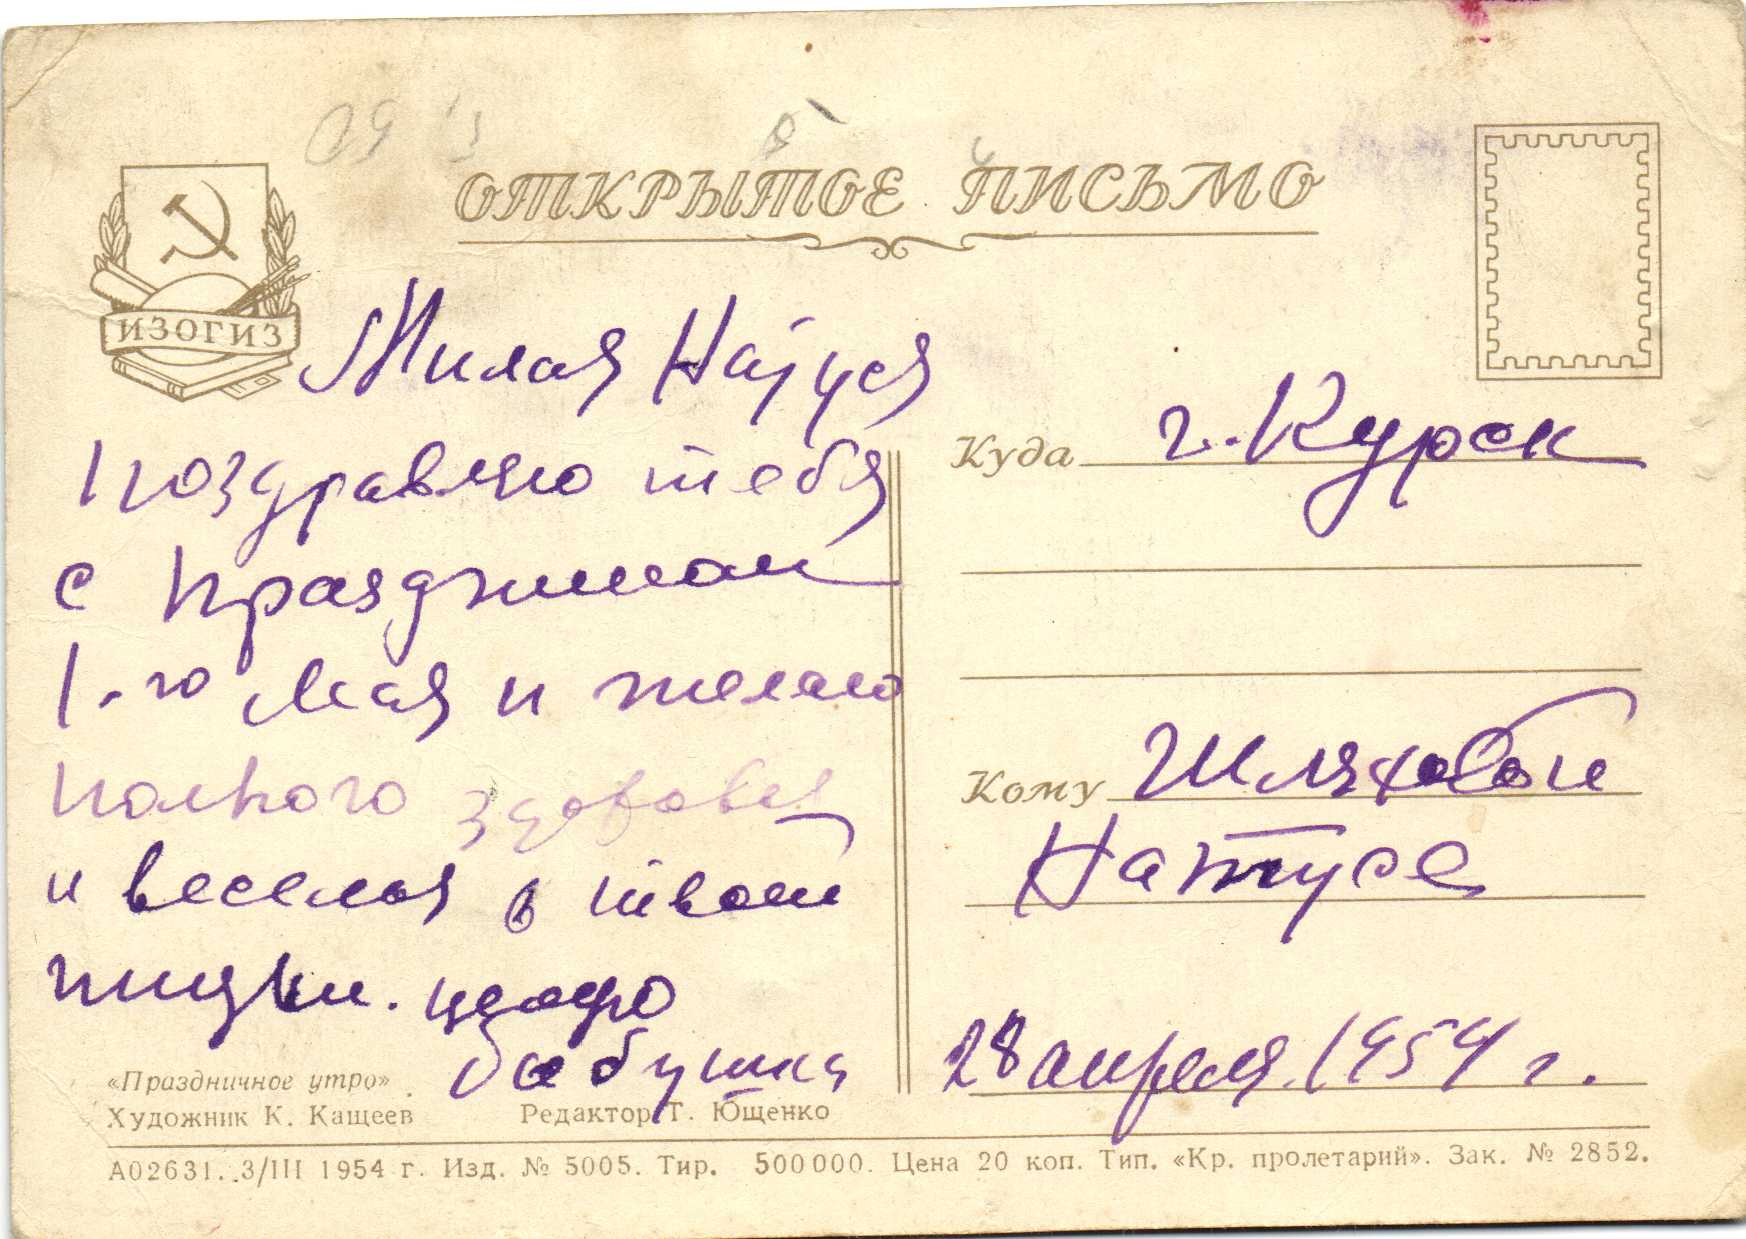 ОТКРЫТОЕ ПИСЬМО
ИЗОГИЗ
Милая Натуся
поздравляю тебя
с праздником
1-го Мая и желаю
полного здоровья
и веселья в твоей
жизни. целую
бабушка
Куда г. Курск
Кому Шляховой
Натусе
28 апреля 1954 г.
«Праздничное утро».
Художник К. Кащеев Редактор Т. Ющенко
А02631. 3/III 1954 г. Изд. № 5005. Тир. 500000. Цена 20 коп. Тип. «Кр. пролетарий». Зак. № 2852.